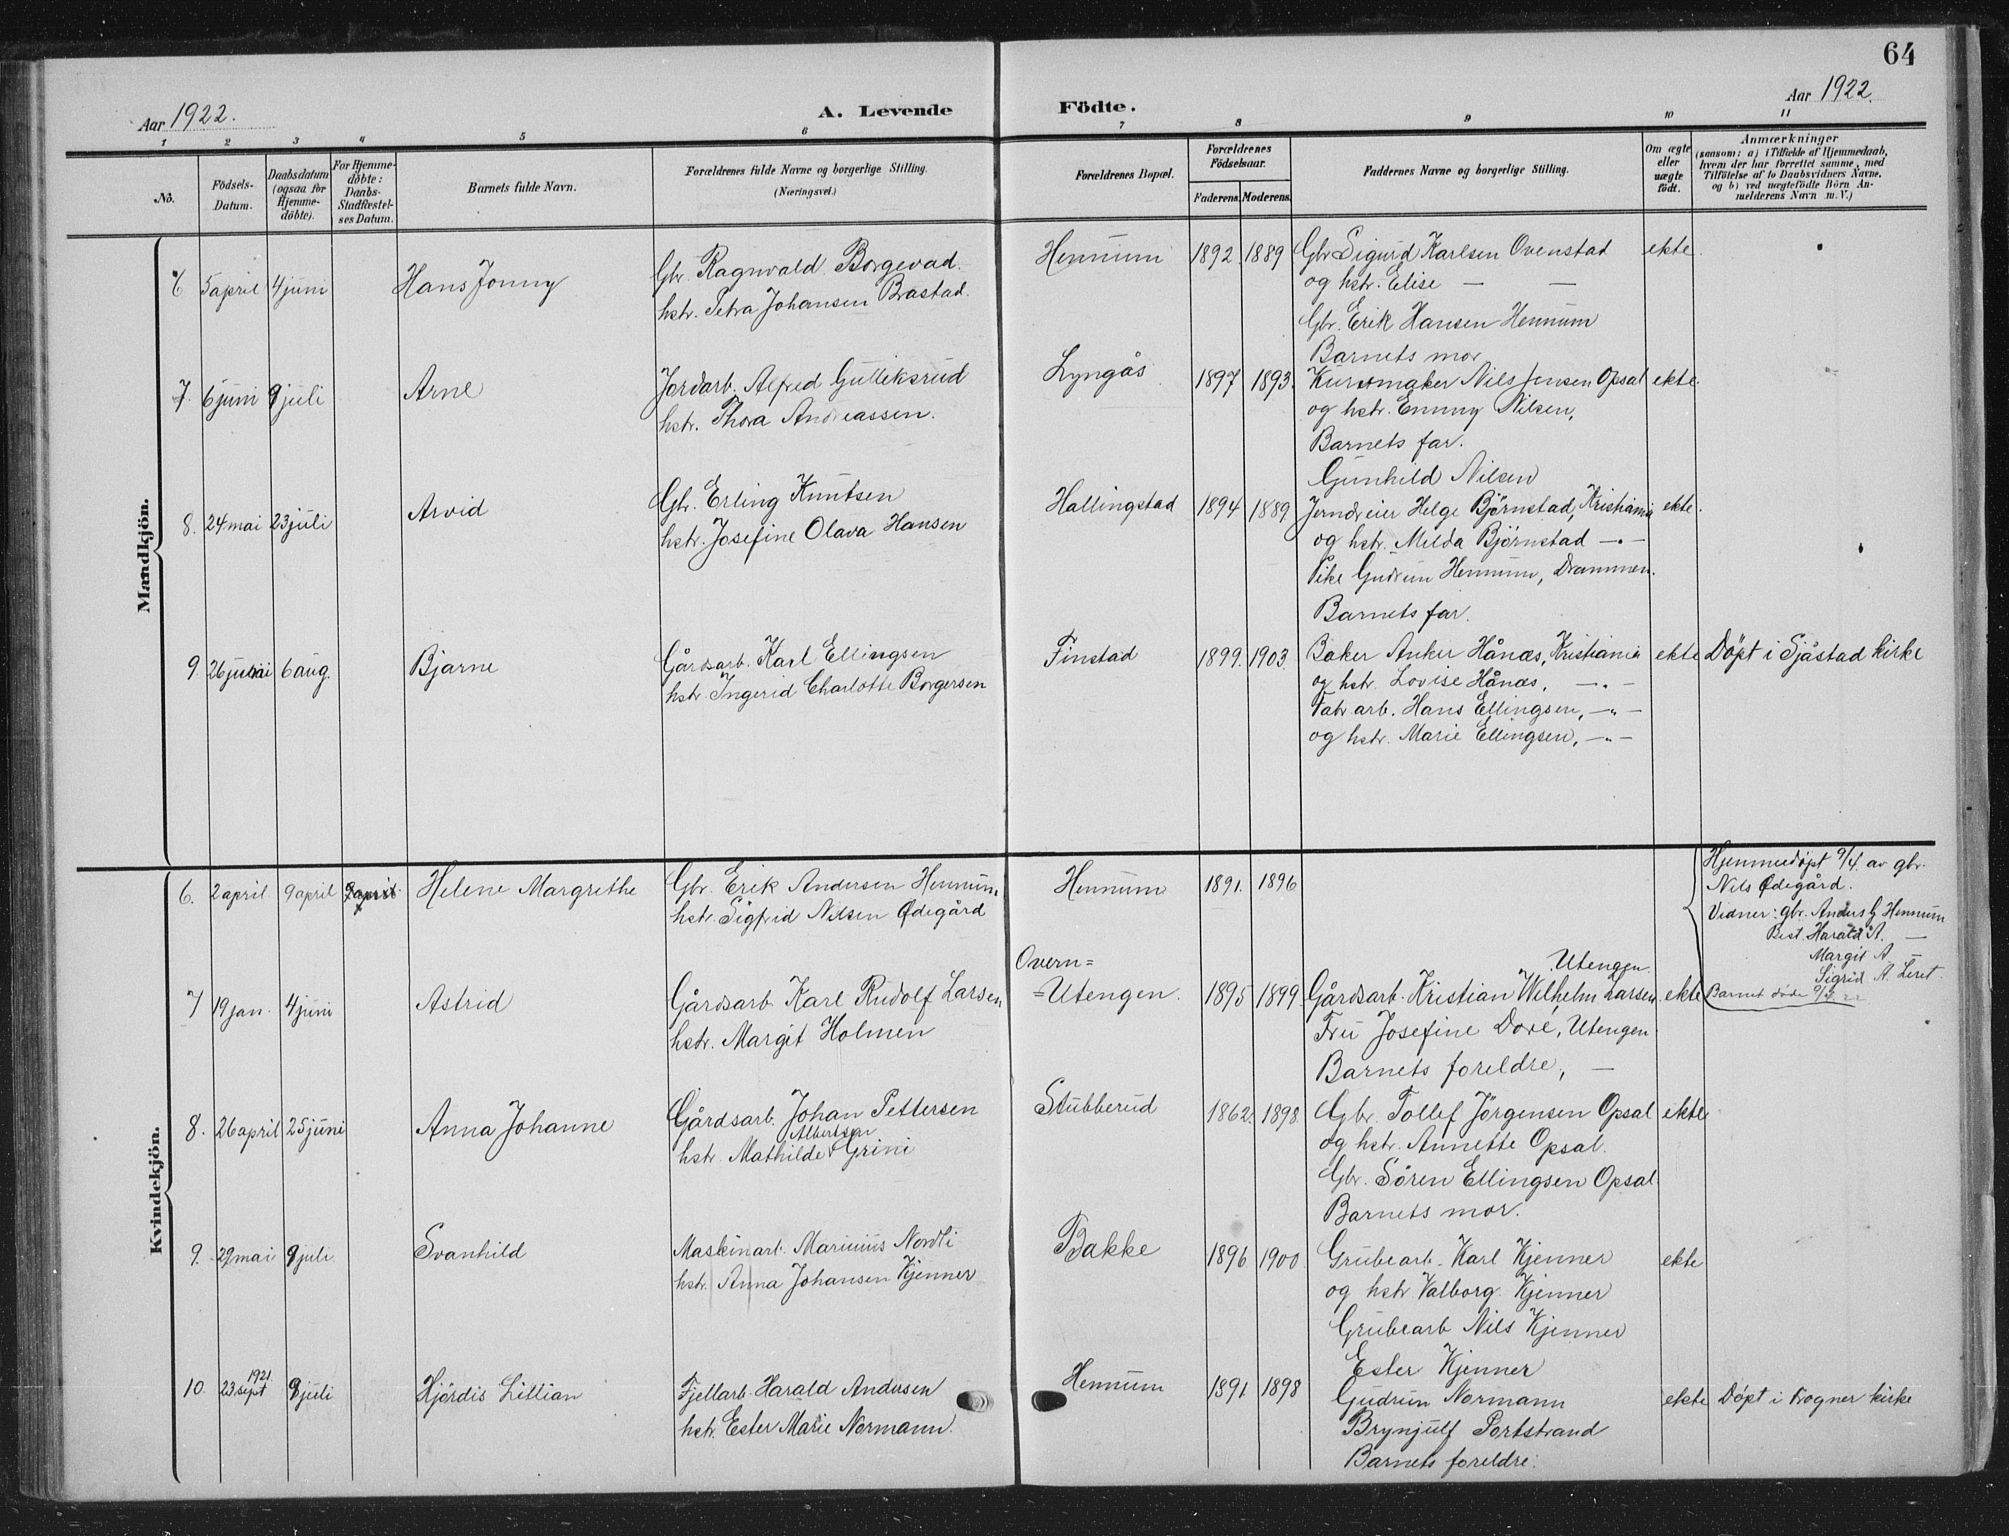 64
Aar 1922.
A. Levende Födte.
Aar 1922.
1 2 3 4 5 6 7 8 9 10 11
No.
Födsels-Datum.
Daabsdatum (ogsaa for Hjemme-döbte).
For Hjemme-döbte: Daabs-Stadfæstel-ses Datum.
Barnets fulde Navn.
Forældrenes fulde Navne og borgerlige Stilling.
(Næringsvei.)
Forældrenes Bopæl.
Forældrenes Födselsaar.
Faderens. Moderens.
Faddernes Navne og borgerlige Stilling.
Om ægte eller uægte födt.
Anmærkninger
(saasom: a) i Tilfælde af Hjemmedaab, hvem der har forrettet samme, med Tilföielse af to Daabsvidners Navne, og b) ved uægtefödte Börn An-melderens Navn m. V.)
Mandkjön.
6 5 april 4 juni Hans Jonny Gbr. Ragnvald Borgevad. Hennum 1892 1889 Gbr Sigurd Karlsen Ovenstad ekte
hstr. Petra Johansen Brastad. og hstr. Elise — —
Gbr. Erik Hansen Hennum
Barnets mor
7. 6 juni 9 juli Arne Jordarb. Alfred Gulliksrud Lyngås 1897 1893. Kurvmaker Nils Jensen Opsal ekte.
hstr. Thora Andreassen. og hstr. Emmy Nilsen,
Barnets far.
Gunhild Nilsen
8. 24 mai 23 juli Arvid Gbr. Erling Knutsen Hallingstad 1894 1889 Jerndreier Helge Björnstad, Kristiania ekte.
hstr. Josefine Olava Hansen og hstr. Milda Björnstad —„—
Pike Gudrun Hennum, Drammen.
Barnets far.
9. 26 6 aug. Bjarne Gårdsarb. Karl Ellingsen Finstad 1899. 1903. Baker Anker Hånæs, Kristiania ekte Döpt i Sjåstad kirke
hstr. Ingerid Charlotte Borgersen og hstr. Lovise Hånæs, —„—
Fabr arb. Hans Ellingsen, —„—
og hstr. Marie Ellingsen, —„—
Kvindekjön.
6. 2 april. 9 april 9 april Helene Margrethe Gbr. Erik Andersen Hennum, Hennum 1891. 1896 Hjemmedøpt 9/4. av gbr.
hstr. Sigfrid Nilsen Ødegård Nils Ødegård.
Vidner: gbr. Anders G Hennum
Best. Harald A. —
Margit A —
Sigrid A. Leret.
Barnet døde
7 19 jan. 4 juni Astrid Gårdsarb. Karl Rudolf Larsen Overn=
=Utengen. 1895 1899 Gårdsarb. Kristian Wilhelm Larsen Utengen. ekte
hstr. Margit Holmen Fru Josefine Doré, Utengen
Barnets foreldre, —
8. 26 april 25 juni Anna Johanne Gårdsarb. Johan Pettersen Stubberud 1862. 1898. Gbr. Tollef Jörgensen Opsal ekte
hstr. Mathilde Albertsen Grini og hstr. Annette Opsal.
Gbr. Sören Ellingsen Opsal.
Barnets mor.
9. 29 mai 9 juli. Svanhild Maskinarb. Marinius Nordli Bakke 1896 1900 Grubearb. Karl Kjenner ekte
hstr. Anna Johansen Kjenner og hstr Valborg Kjenner
Grubearb Nils Kjenner
Ester Kjenner
10. 23 sept 1921 9 juli Hjördis Lillian Fjellarb. Harald Andersen Hennum 1891. 1898 Gudrun Normann ekte Döpt i Frogner kirke
hstr. Ester Marie Normann. Brynjulf Portstrand
Barnets foreldre.